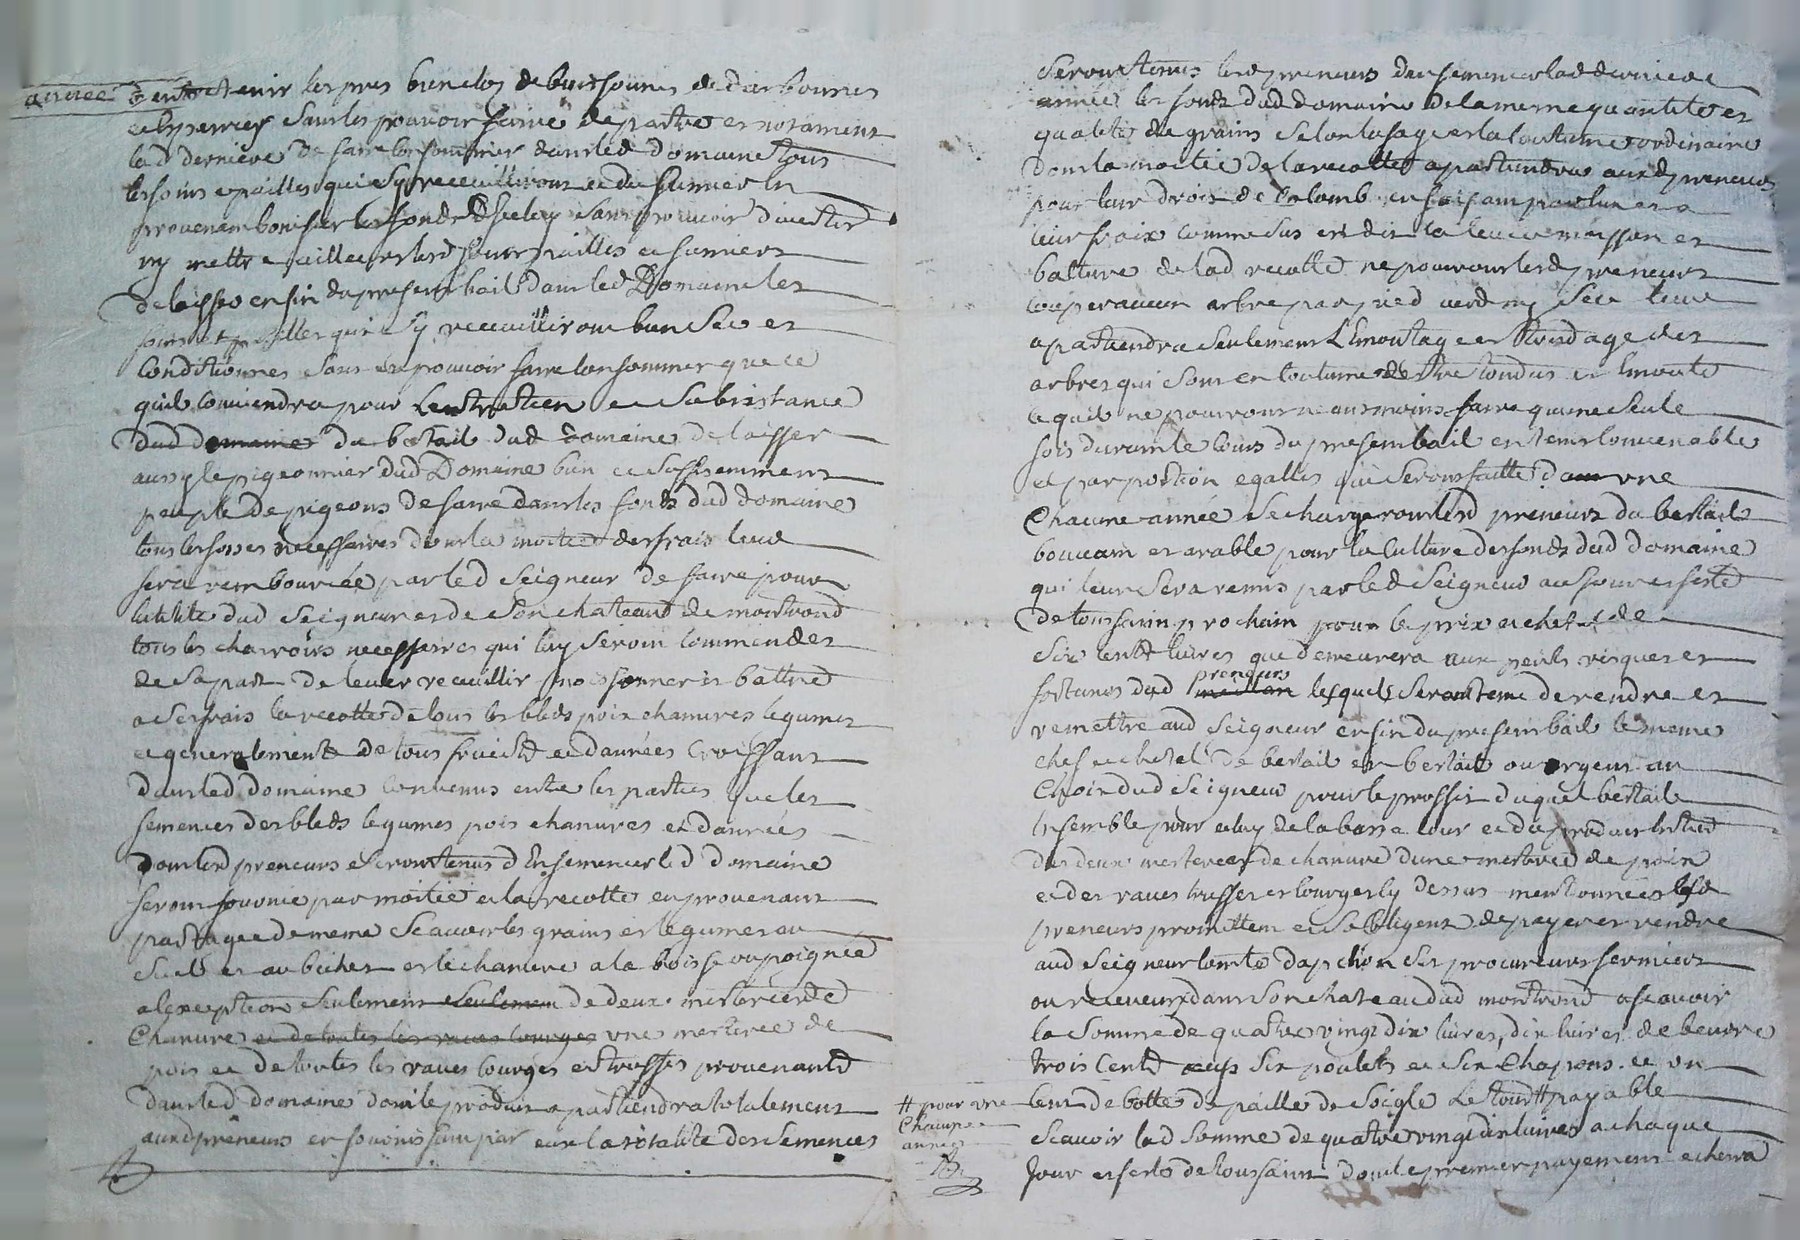 année
d'entretenir les prés bien clos de buissons de d'arbonnes
sans les pouvoir faire depaitre et notament
lad derniere de faire consommer dans led domaine tous
les foins et pailles qui s'y receuilliront et du fumier en
provenant bonifier les fonds d'iceluy sans pouvoir divertir
ny mettre ailleurs lesd foins pailles et fumiers
delaisser en fin du present bail dans led Domaine les
foins et pailles qui s'y receuilliront bien sec et
conditionnes sans en pouvoir faire consommer que ce
quil conviendra pour L'entretien et subsistance
dud domaine du betail dud domaine de laisser
aussy le pigeonnier dud Domaine bien et suffisamment
peuplé de pigeons de faire dans les fonds dud domaine
tous les fosses necessaires dont la moitié des frais leur
sera remboursée par led Seigneur de faire pour
lutilite dud Seigneur et de son chateau de montrond
tous les charrois necessaires qui luy seront commendes
de sa part de lever receuillir moissonner et battre
a ses frais la recolte de tous les bleds pois chanvres legumes
et generalement de tous fruicts et danrées croissant
dans led domaine convenus entre les parties que les
semences des bleds legumes pois chanvres et danrées
dont lesd preneurs seront tenus d'Ensemencer led domaine
seront fournie par moitié et la recolte en provenant
partagée de meme Scavoir les grains et legumes au
et au bichet et le chanvre a la boisse ou poignée
a l'exeption seulement seulement de deux mesterée de
Chanvre et de toutes les raves courges une mesterée de
pois et de toutes les raves courges et truffes provenants
dans led domaine dont le produit apartiendra totalement
auxd preneurs en fournissant par eux la totalité des semences
seront tenus lesd preneurs d'ensemencer lad derniere
année les fonds dud domaine de la meme quantité et
qualité de grains selon lusage et la coutume ordinaire
dont la moitié de la recolte apartiendra auxd preneurs
pour leur droit de Colomb en faisant par eux a
leurs fraix comme sus est dit la levée moisson et
batture de lad recolte ne pourront lesd preneurs
couper aucun arbre par pied verd ny sec leur
apartiendra seulement L'Emontage et Tondage des
arbres qui sont en coutume destre tondus et Emonté
ce quils ne pourront neantmoins faire qu'une seule
fois durant le cours du present bail en tems convenable
et par portion egalles qui seront faitte dans une
Chacune année se chargeront lesd preneurs du bestail
bouvain et arable pour la Culture des fonds dud domaine
qui leur sera remis par led Seigneur au jour et feste
de toussaint prochain pour le prix et chef de
Six cents livres que demeurera aux perils risques et
preneurs
fortunes dud lesquels seront tenu de rendre et
remettre aud Seigneur en fin du present bail le meme
chef et chetel de bestail en bestail ou argent au
Choix dud Seigneur pour le proffit duquel bestail
Ensemble pour celuy de la basse cour et du produit
des deux mesterées de chanvre d'une mesterée de pois
et des raves truffes et courges cy dessus mentionnées lesd
preneurs promettent et s'obligent de payer et rendre
aud Seigneur comte dapchon ses procureurs fermiers
ou receveurs dans son chateau dud montrond a scavoir
la somme de quatre vingt dix livres, dix livres de beurre
trois cents œufs six poulets et six chapons et un
# pour une
Chacune
année
cent de botte de paille de Soigle Le tout # payable
Scavoir lad somme de quatre vingt dix livres a chaque
Jour et feste de toussaint dont le premier payement echerra